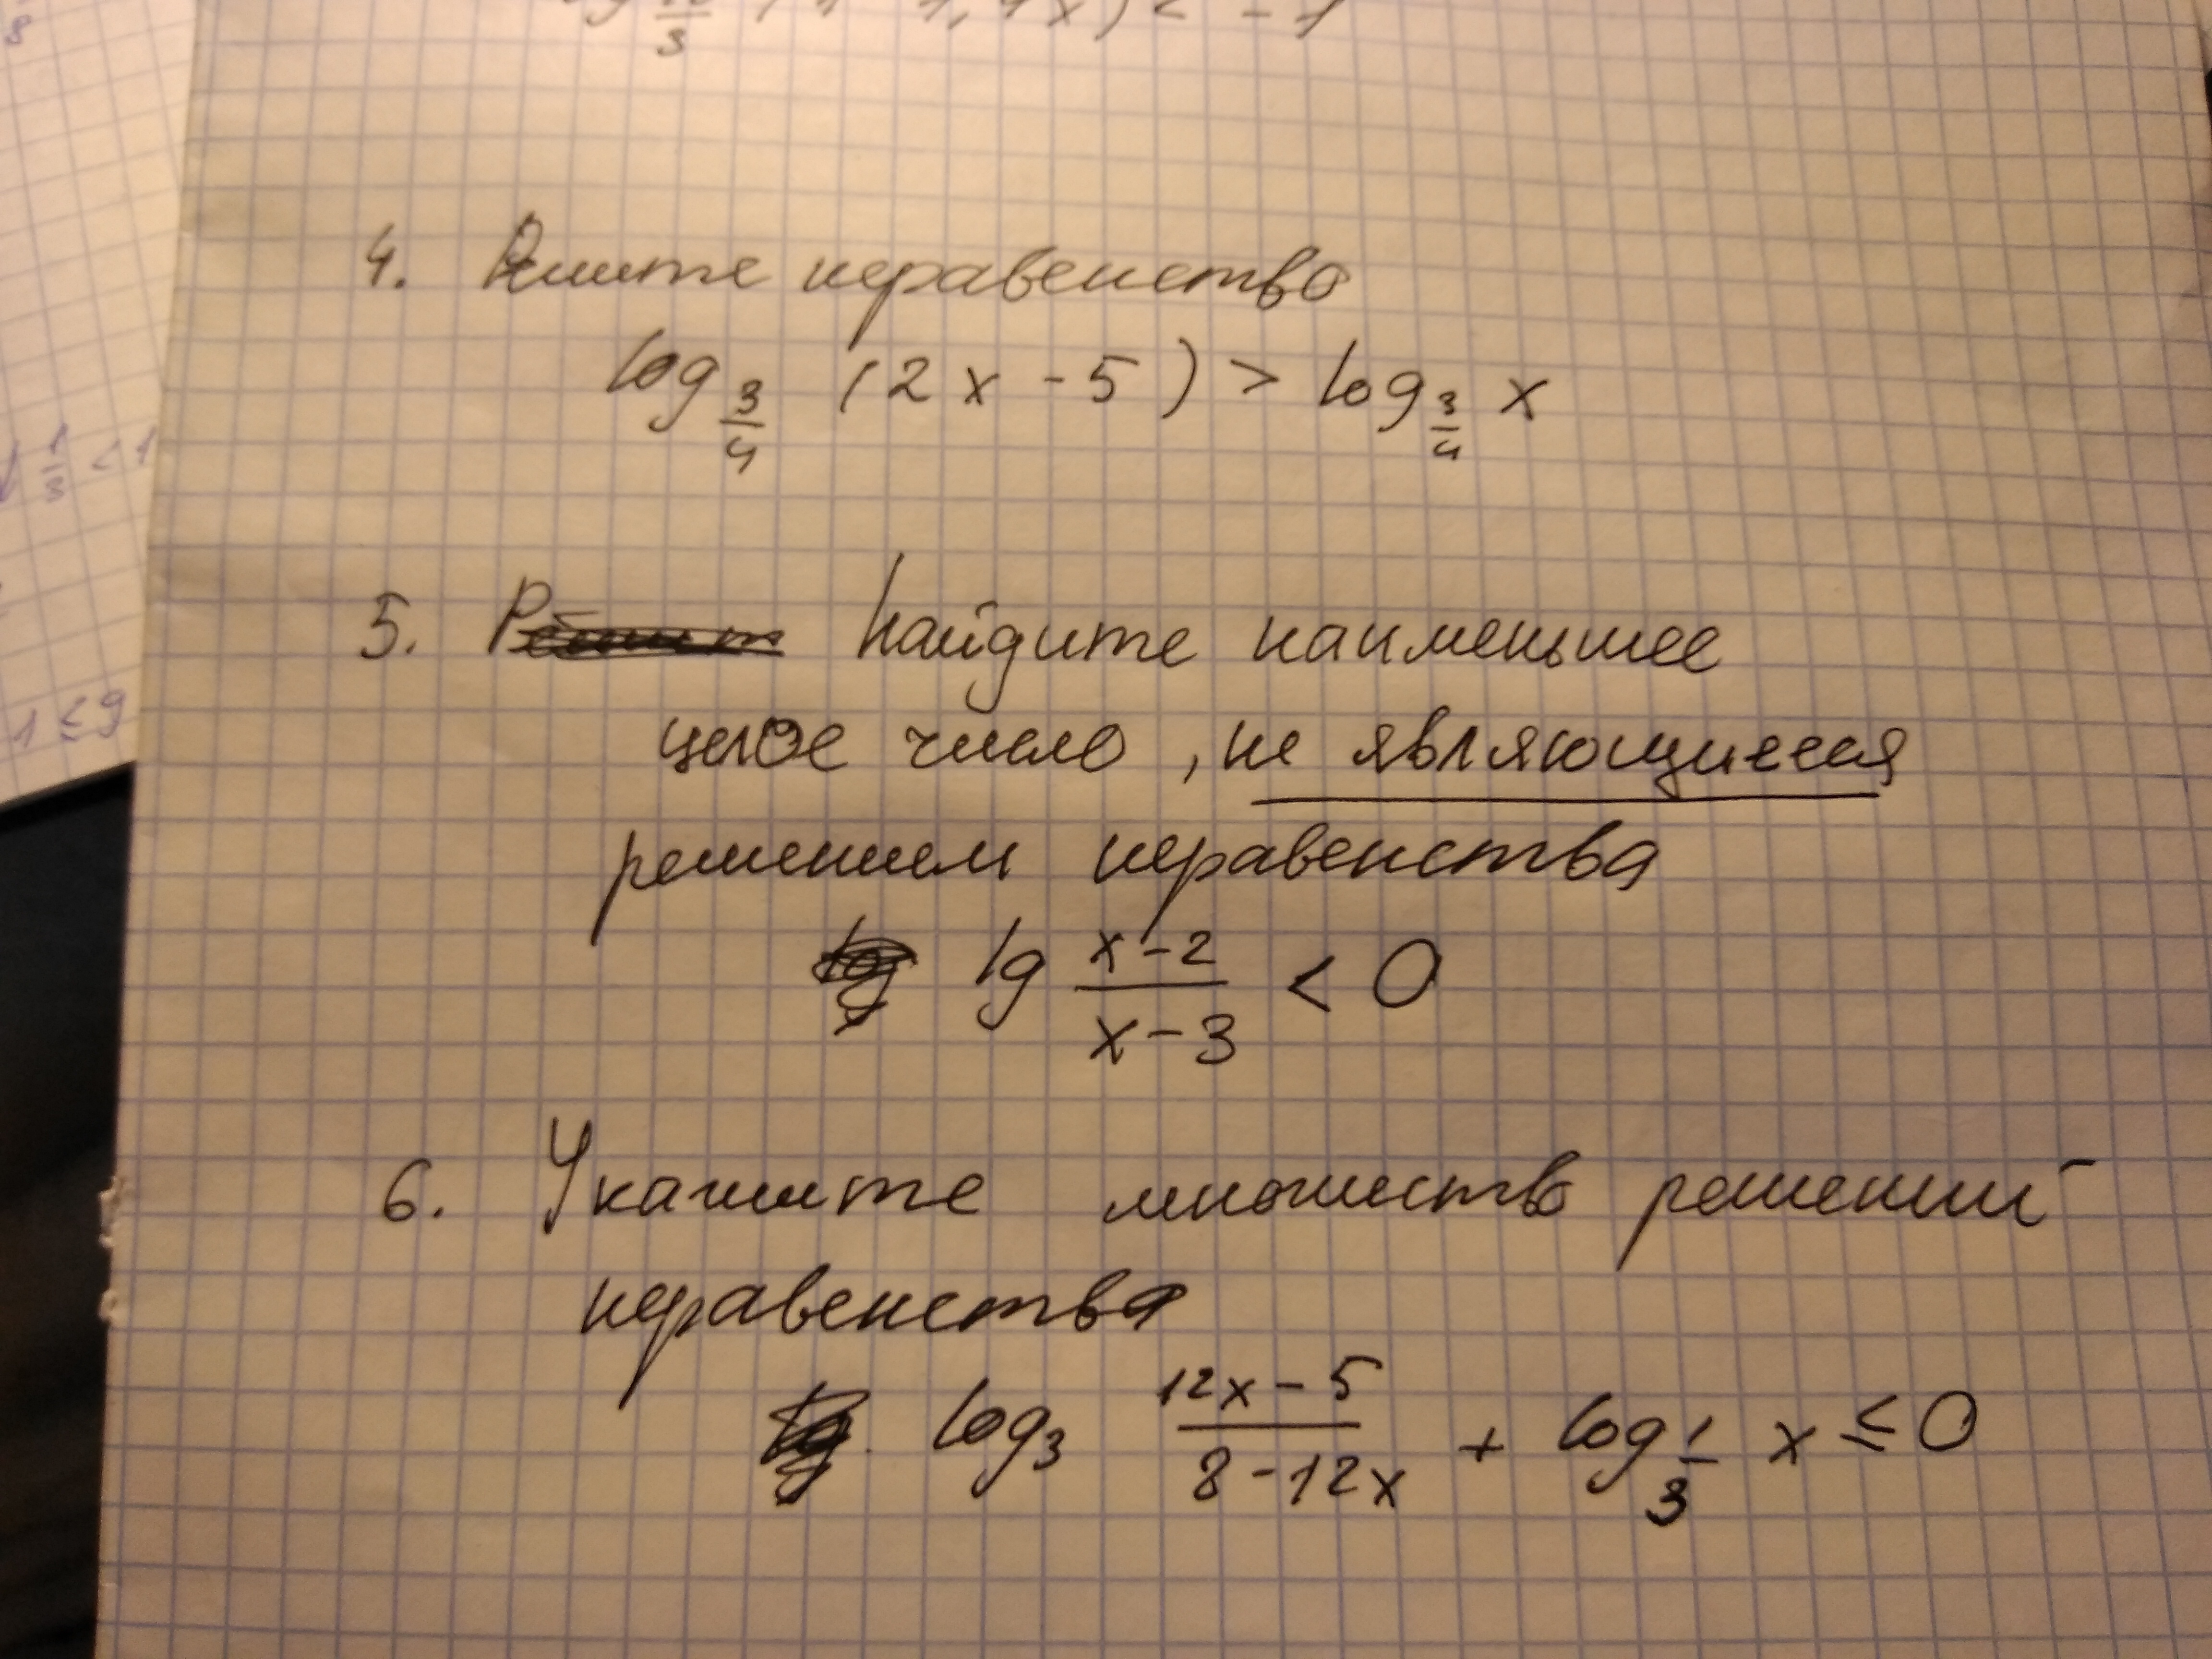 < -1
4. Решите неравенство
log 3/4 (2x - 5) > log 3/4 x
1/3 < 1
5. Найдите наименьшее
целое число, не являющееся
1 ≤ 9
решением неравенства
lg (x-2)/(x-3) < 0
6. Укажите множество решений
неравенства
log3 (12x-5)/(8-12x) + log 1/3 x ≤ 0